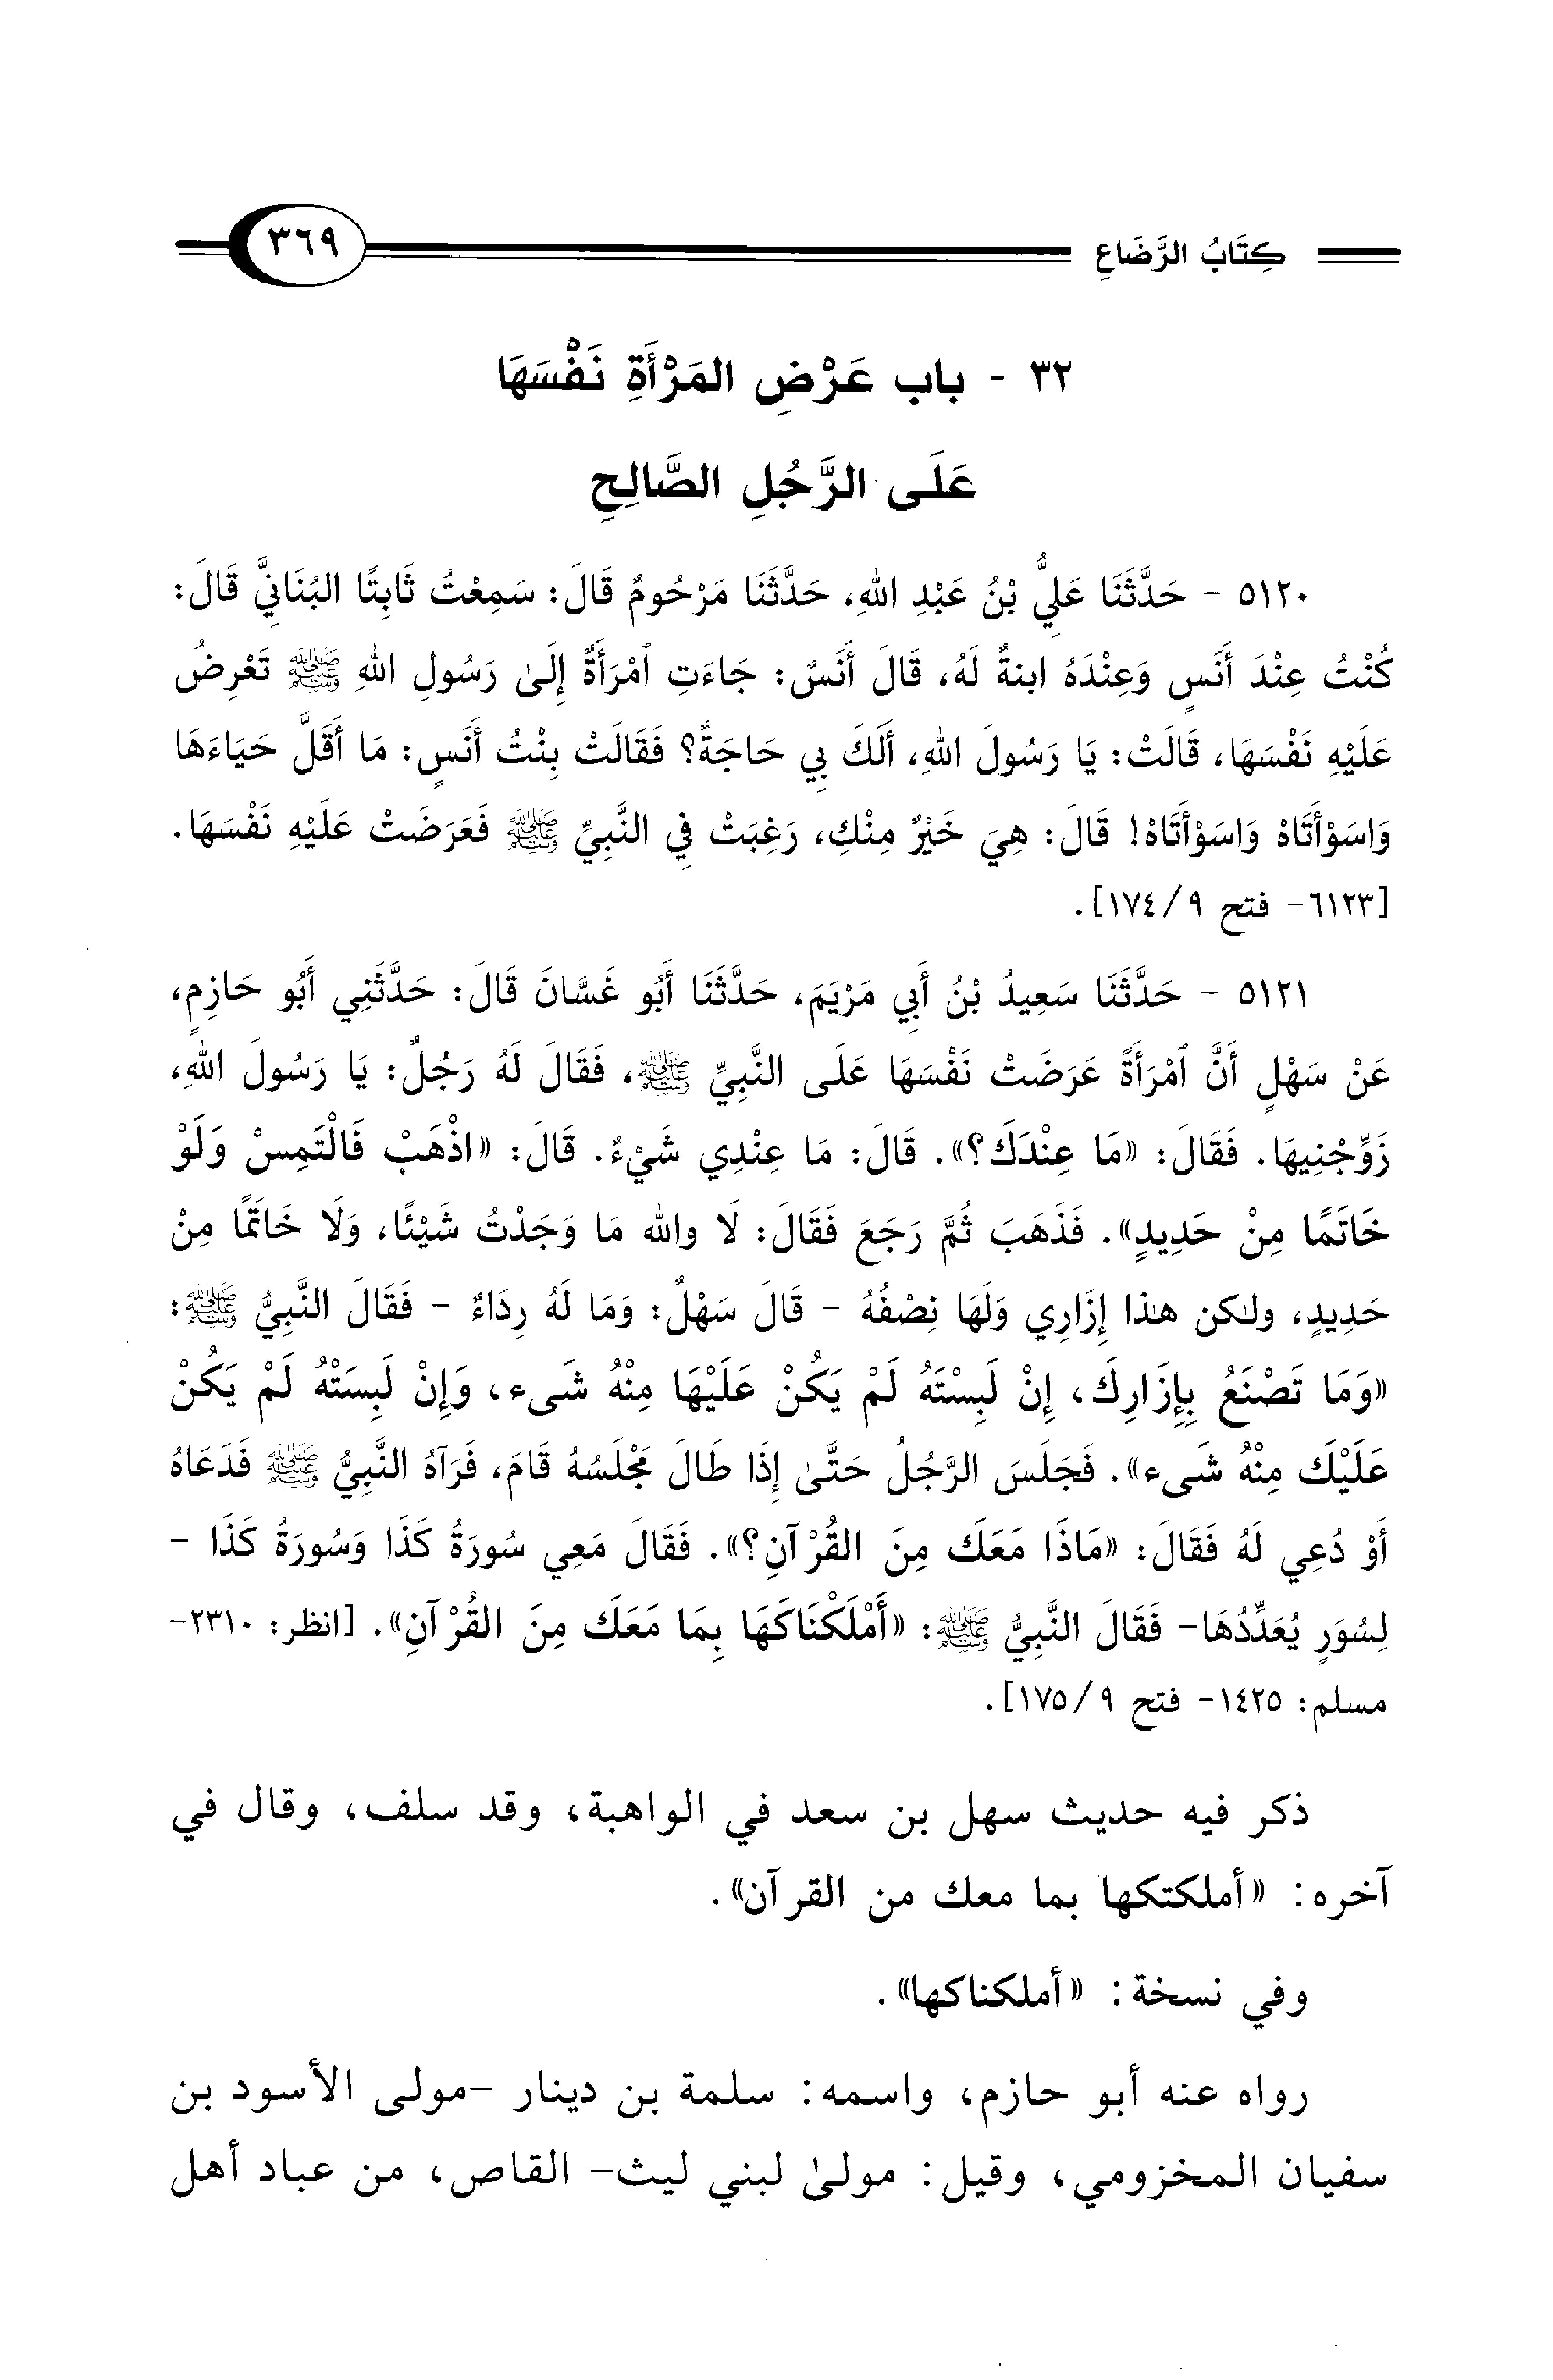 كِتَابُ الرَّضَاعِ ٣٦٩
٣٢ - باب عَرْضِ المَرْأَةِ نَفْسَهَا
عَلَى الرَّجُلِ الصَّالِحِ
٥١٢٠ - حَدَّثَنَا عَلِيُّ بْنُ عَبْدِ اللهِ، حَدَّثَنَا مَرْحُومٌ قَالَ: سَمِعْتُ ثَابِتًا البُنَانِيَّ قَالَ:
كُنْتُ عِنْدَ أَنَسٍ وَعِنْدَهُ ابنةٌ لَهُ، قَالَ أَنَسٌ: جَاءَتِ ٱمْرَأَةٌ إِلَىٰ رَسُولِ اللهِ ﷺ تَعْرِضُ
عَلَيْهِ نَفْسَهَا، قَالَتْ: يَا رَسُولَ اللهِ، أَلَكَ بِي حَاجَةٌ؟ فَقَالَتْ بِنْتُ أَنَسٍ: مَا أَقَلَّ حَيَاءَهَا
وَاسَوْأَتَاهْ وَاسَوْأَتَاهْ! قَالَ: هِيَ خَيْرٌ مِنْكِ، رَغِبَتْ فِي النَّبِيِّ ﷺ فَعَرَضَتْ عَلَيْهِ نَفْسَهَا.
[٦١٢٣- فتح ٩/ ١٧٤].
٥١٢١ - حَدَّثَنَا سَعِيدُ بْنُ أَبِي مَرْيَمَ، حَدَّثَنَا أَبُو غَسَّانَ قَالَ: حَدَّثَنِي أَبُو حَازِمٍ،
عَنْ سَهْلٍ أَنَّ ٱمْرَأَةً عَرَضَتْ نَفْسَهَا عَلَى النَّبِيِّ ﷺ، فَقَالَ لَهُ رَجُلٌ: يَا رَسُولَ اللهِ،
زَوِّجْنِيهَا. فَقَالَ: «مَا عِنْدَكَ؟». قَالَ: مَا عِنْدِي شَيْءٌ. قَالَ: «اذْهَبْ فَالْتَمِسْ وَلَوْ
خَاتَمًا مِنْ حَدِيدٍ». فَذَهَبَ ثُمَّ رَجَعَ فَقَالَ: لَا والله مَا وَجَدْتُ شَيْئًا، وَلَا خَاتَمًا مِنْ
حَدِيدٍ، ولكن هٰذا إِزَارِي وَلَهَا نِصْفُهُ - قَالَ سَهْلٌ: وَمَا لَهُ رِدَاءٌ - فَقَالَ النَّبِيُّ ﷺ:
«وَمَا تَصْنَعُ بِإِزَارِكَ، إِنْ لَبِسْتَهُ لَمْ يَكُنْ عَلَيْهَا مِنْهُ شَىء، وَإِنْ لَبِسَتْهُ لَمْ يَكُنْ
عَلَيْكَ مِنْهُ شَىء». فَجَلَسَ الرَّجُلُ حَتَّىٰ إِذَا طَالَ مَجْلَسُهُ قَامَ، فَرَآهُ النَّبِيُّ ﷺ فَدَعَاهُ
أَوْ دُعِي لَهُ فَقَالَ: «مَاذَا مَعَكَ مِنَ القُرْآنِ؟». فَقَالَ مَعِي سُورَةُ كَذَا وَسُورَةُ كَذَا -
لِسُوَرٍ يُعَدِّدُهَا- فَقَالَ النَّبِيُّ ﷺ: «أَمْلَكْنَاكَهَا بِمَا مَعَكَ مِنَ القُرْآنِ». [انظر: ٢٣١٠-
مسلم: ١٤٢٥- فتح ٩/ ١٧٥].
ذكر فيه حديث سهل بن سعد في الواهبة، وقد سلف، وقال في
آخره: «أملكتكها بما معك من القرآن».
وفي نسخة: «أملكناكها».
رواه عنه أبو حازم، واسمه: سلمة بن دينار -مولى الأسود بن
سفيان المخزومي، وقيل: مولىٰ لبني ليث- القاص، من عباد أهل